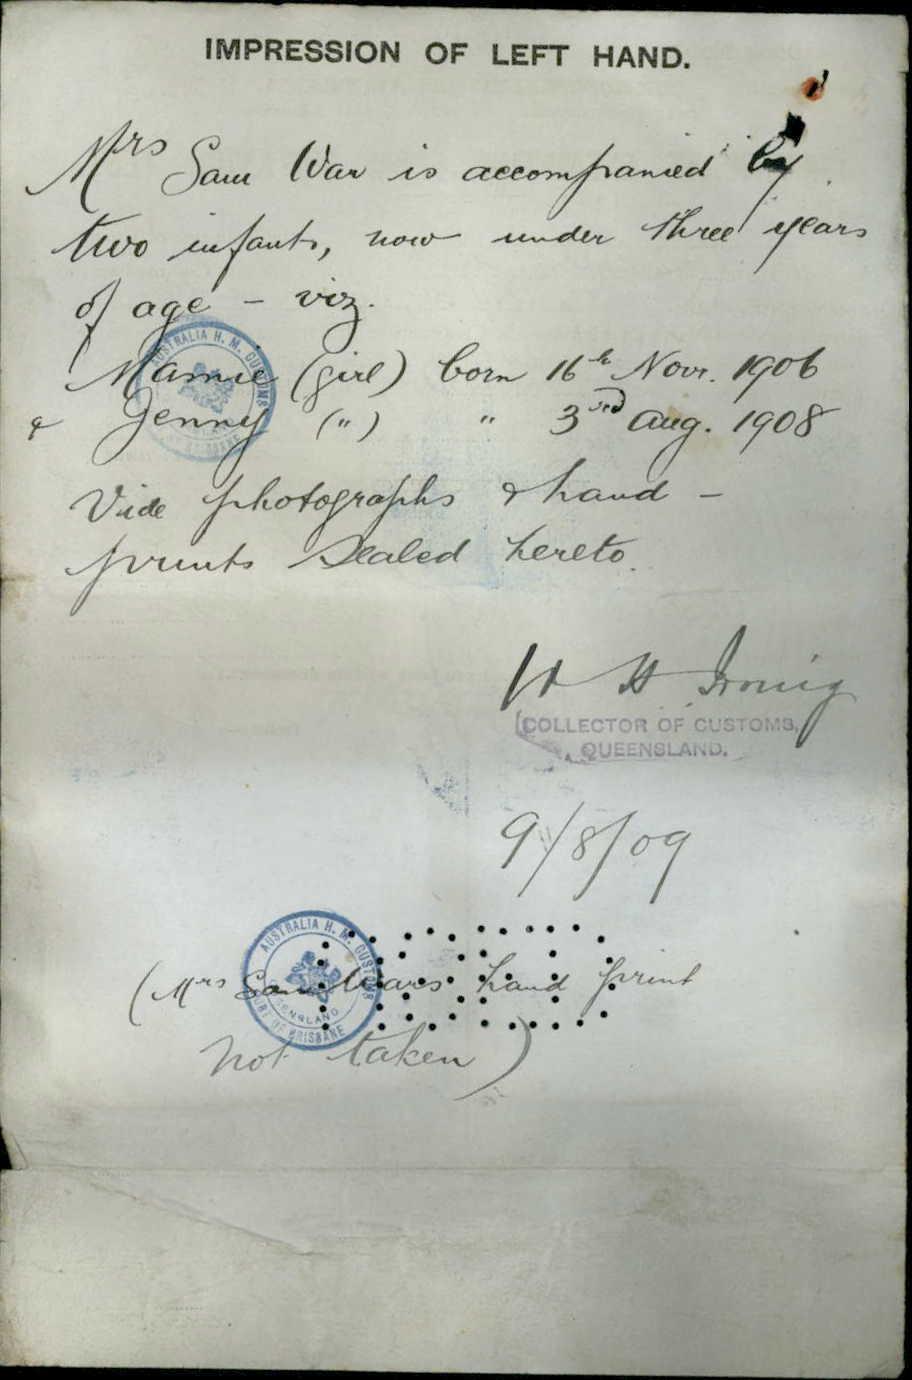 IMPRESSION OF LEFT HAND.
Mrs Sam War is accompanied by
two infants, now under three years
of age – viz.
AUSTRALIA H. M. CUSTOMS
BRISBANE
Mamie (girl) born 16th Novr. 1906
& Jenny (") " 3rd Aug. 1908
Vide photographs & hand –
prints sealed hereto.
W H Irving
COLLECTOR OF CUSTOMS,
QUEENSLAND.
9/8/09
AUSTRALIA H. M. CUSTOMS
QUEENSLAND
PORT OF BRISBANE
(Mrs Sam Wars hand print
not taken)